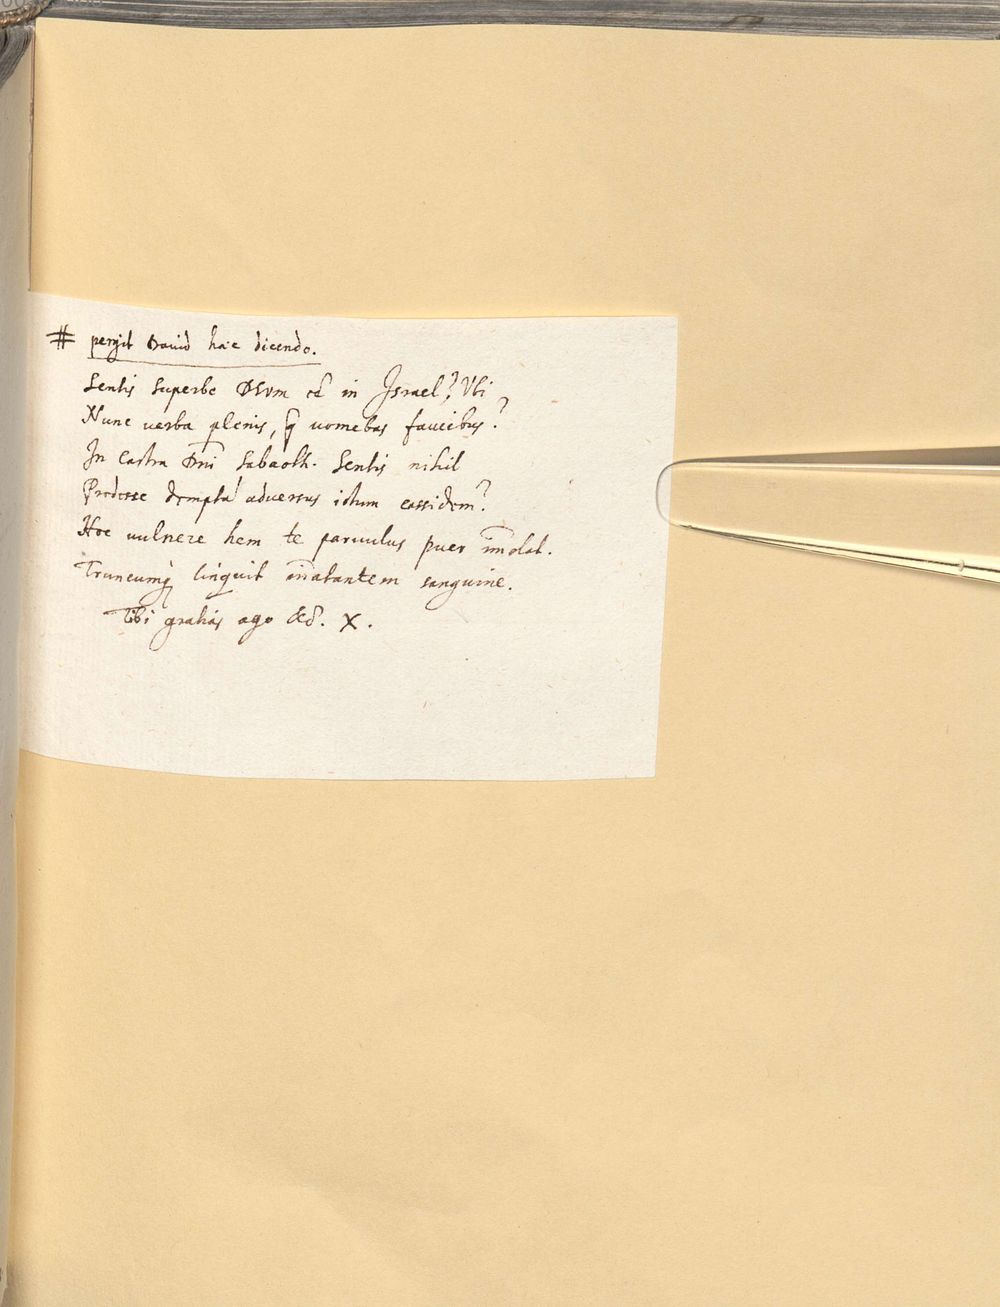 # pergit Dauid haec dicendo.
Sentis superbe DEVM eē in Israel? Vbi
Nunc uerba plenis, q̃ uomebas faucibus?
In castra Dn̄i Sabaoth. Sentis nihil
Prodesse dempta' aduersus ictum cassidem?
Hoc uulnere hem te paruulus puer im̄olat.
Truncumq̃ linquit in̄atantem sanguine.
Tibi gratias ago &c. X.